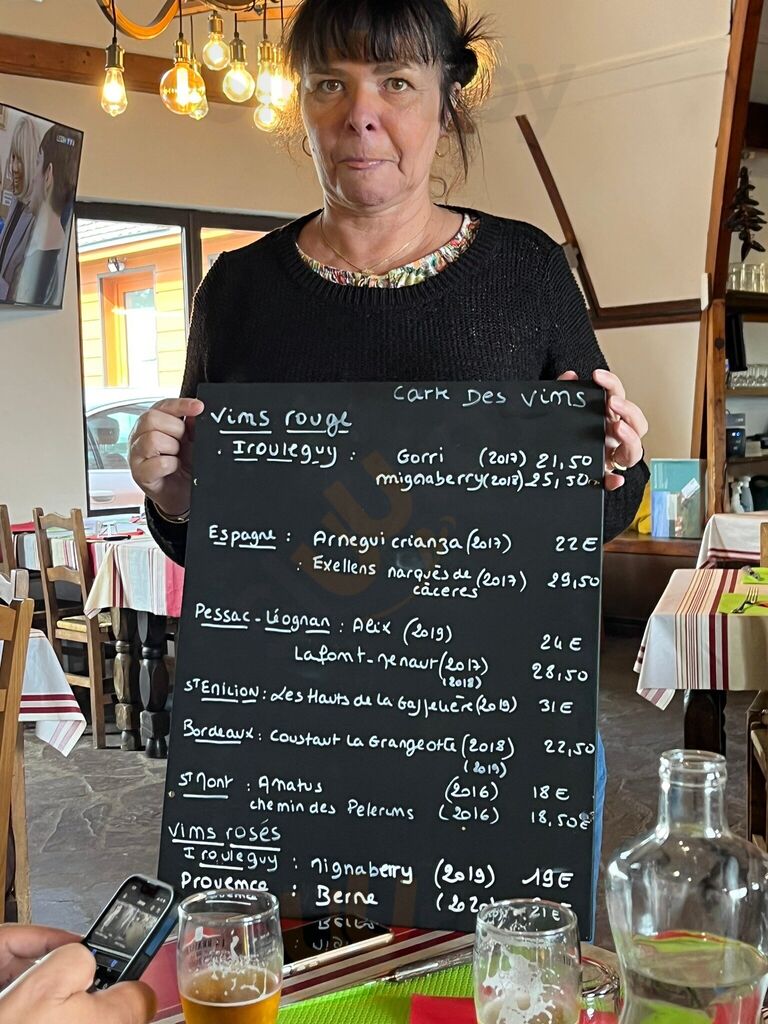 Carte Des Vins
Vins rouge
. Irouleguy : Gorri (2017) 21,50
mignaberry (2018) 25,50
Espagne : Arnegui crianza (2017) 22€
: Exellens marquès de (2017) 29,50
càceres
Pessac-Léognan : Alix (2019) 24€
Lafont-menaut (2017) 28,50
(2018)
St EMILION : Les Hauts de la Gaffelière (2019) 31€
Bordeaux : Coustaut La Grangeotte (2018) 22,50
(2019)
St Mont : Amatus (2016) 18€
chemin des Pelerins (2016) 18,50€
Vins rosés
Irouleguy : Mignaberry (2019) 19€
Provence : Berne 21€